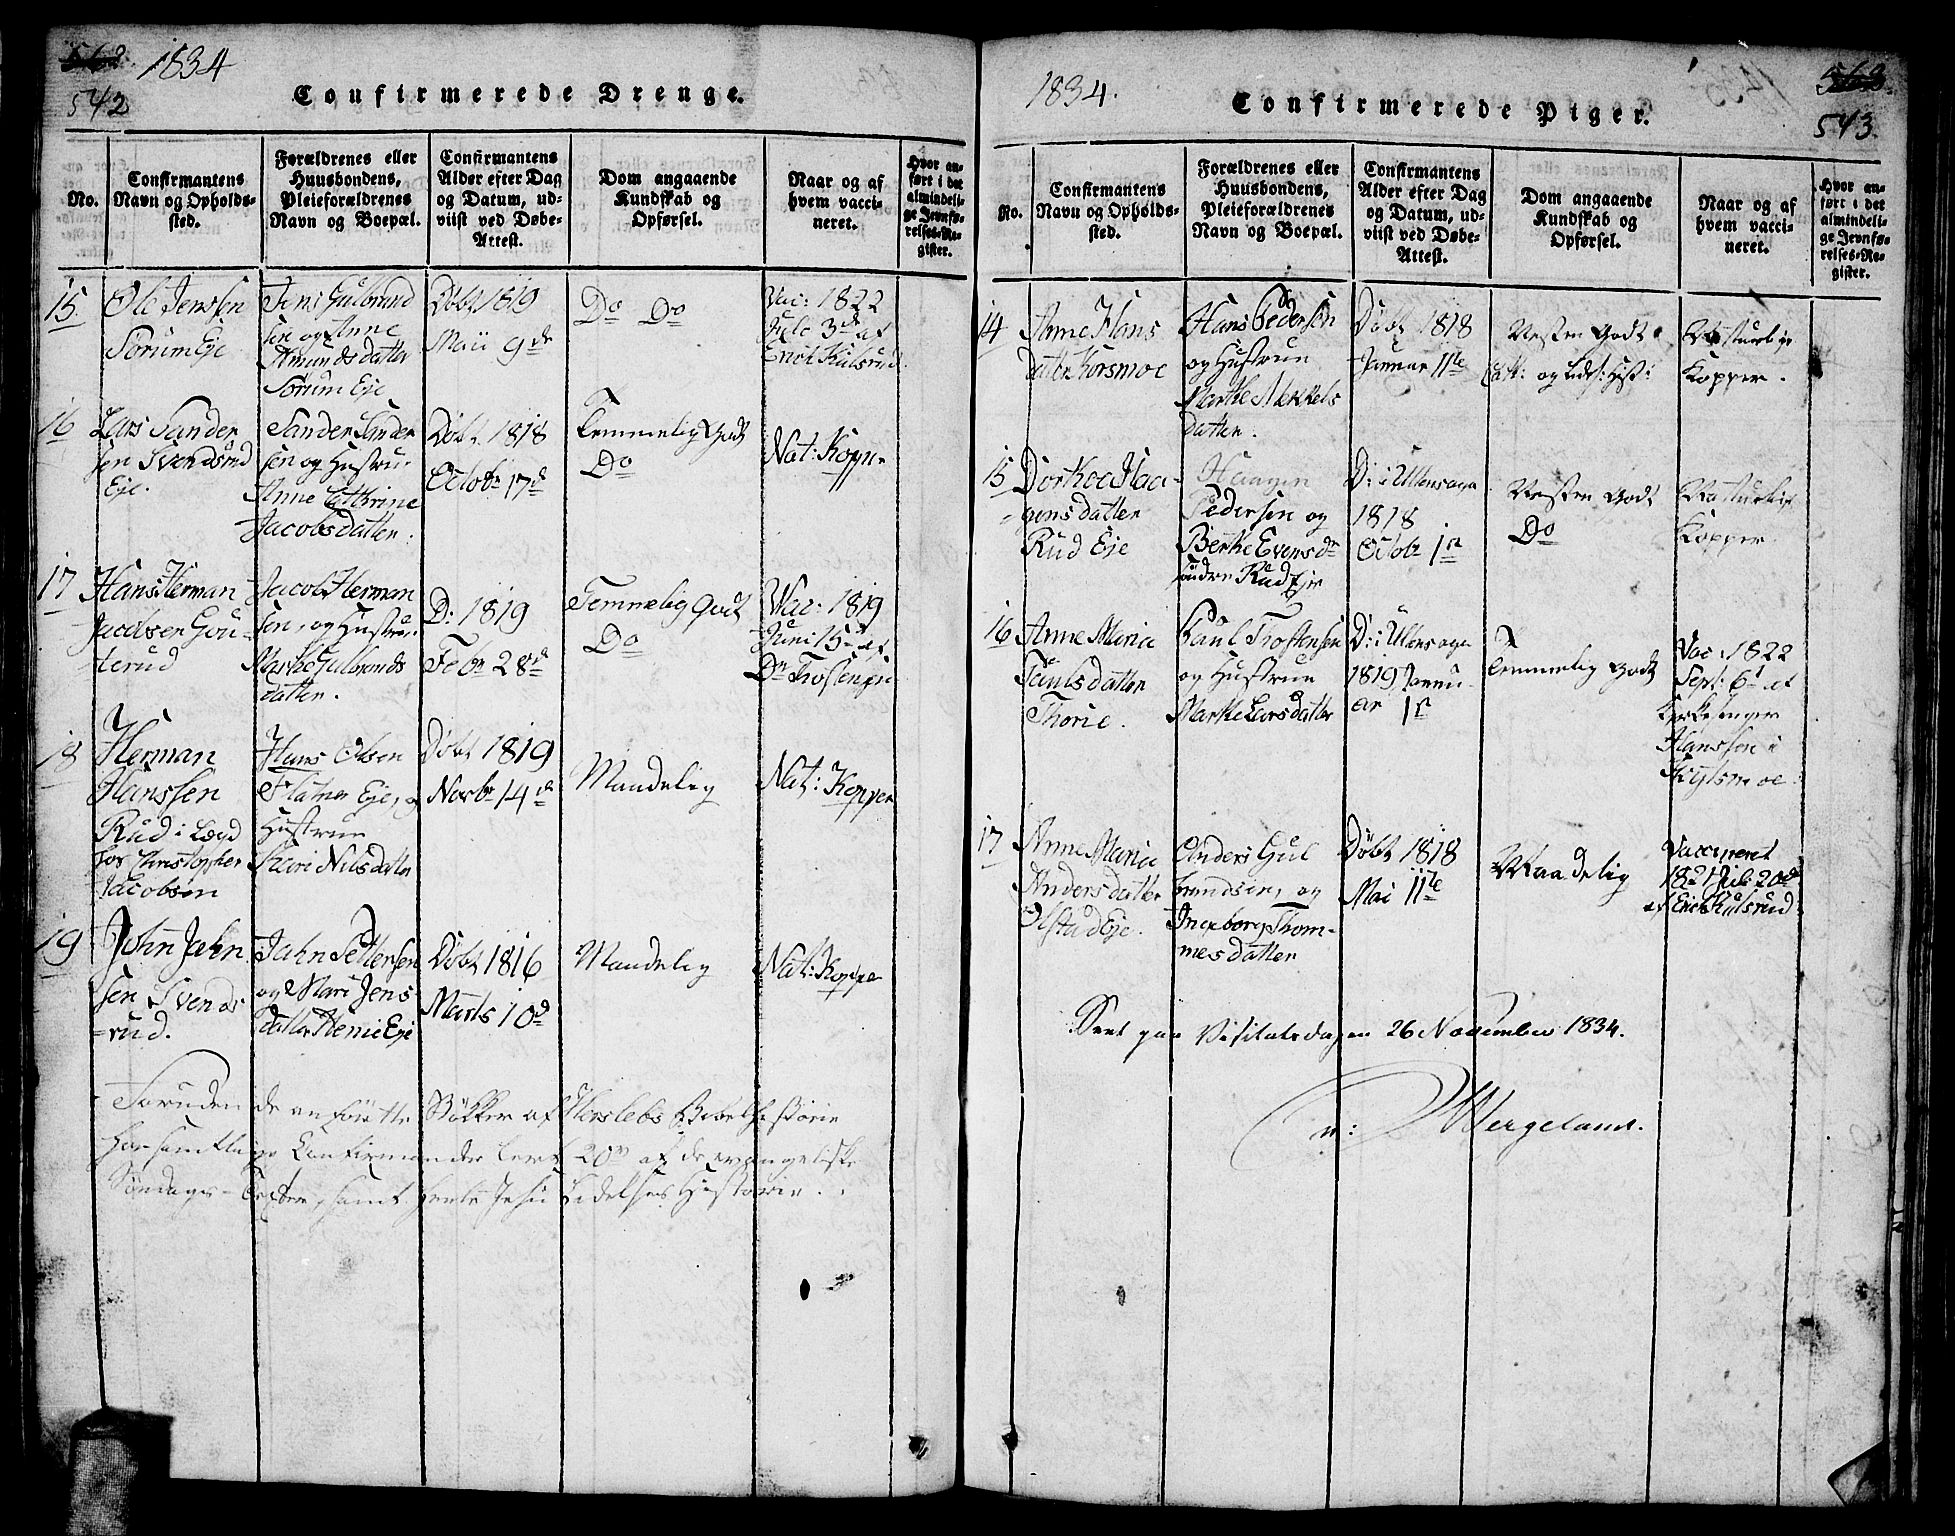 562. 1834
542
Confirmerede Drenge.
No.
Confirmantens
Navn og Opholds-
sted.
Forældrenes eller
Huusbondens,
Pleieforældrenes
Navn og Boepæl.
Confirmantens
Alder efter Dag
og Datum, ud-
viist ved Døbe-
Attest.
Dom angaaende
Kundskab og
Opførsel.
Naar og af
hvem vacci-
neret.
Hvor an-
ført i det
almindeli-
ge Jevnfø-
relses-Re-
gister.
15
Ole Jenssen
Sørum Eje
Jens Gulbrand
sen og Anne
Amundsdatter
Sørum Eje
Døbt 1819
Maii 9de
Do Do
Vac: 1822
Jule 3de af
Erich Kulsrud
16
Lars Sander
sen Svendsrud
Eje.
Sander Sander
sen og Hustru
Anne Cathrine
Jacobsdatter.
Døbt 1818
Octobr 17d
Temmelig Godt
Do
Nat: Kopp
17
Hans Herman
Jacobsen Gou-
terud
Jacob Herman
sen, og Hustru
Marthe Gulbrands
datter.
D: 1819
Febr 28d
Temmelig godt
Do
Vac: 1819
Juni 15 af
Dr
18
Herman
Hanssen
Rud i Lægd
hos Christopher
Jacobsen
Hans Olsen
Eje, og
Hustrue
Kari Nilsdatter
Døbt 1819
Novbr 14d
Maadelig
Nat: Kopper
19
John John
sen Svends
-rud.
John Pettersen
og Mari Jens
datter Eje
Døbt 1816
Marts 10d
Maadelig
Nat: Kopper
Foruden de anførte Stökker af Herslebs Bibelhistorie
har samtlige Confirmander lert 20 af de evangeliske
Søndags-Texter, samt Jesu Lidelses Historie.
1834.
563.
543.
Confirmerede Piger.
No.
Confirmantens
Navn og Opholds-
sted.
Forældrenes eller
Huusbondens,
Pleieforældrenes
Navn og Boepæl.
Confirmantens
Alder efter Dag
og Datum, ud-
viist ved Døbe-
Attest.
Dom angaaende
Kundskab og
Opførsel.
Naar og af
hvem vacci-
neret.
Hvor an-
ført i det
almindeli-
ge Jevnfø-
relses-Re-
gister.
14
Anne Hans
datter Korsmoe
Hans Pedersen
og Hustrue
Marthe Mekkels
datter.
Døbt 1818
Januar 11te
Næsten Godt
og Hist:
Naturlige
Kopper.
15
Dorthea Haa-
gensdatter
Rud Eje
Haagen
Pedersen og
Berthe Evensdr
Rud Eje
D: i Ullensager
1818
Octobr 1st
Næsten Godt
Do
Naturlige
Kopper.
16
Anne Maria
Paulsdatter
Thorie.
Paul Trostensen
og Hustrue
Marthe Larsdatter
D: i Ullensager
1819 Janu
ar 1st
Temmelig Godt
Vac: 1822
Sept: 6t af
Kirkesanger
Hanssen i
17
Anne Maria
Andersdatter
Olstad Eje.
Anders Gul
brandsen, og
Ingeborg Thom-
mesdatter
Døbt 1818
Mai 11te
Maadelig
Vaccineret
1821 Juli 20d
af Erich Kulsrud
Seet paa Visitatsdagen 26 November 1834.
n: Wergeland.